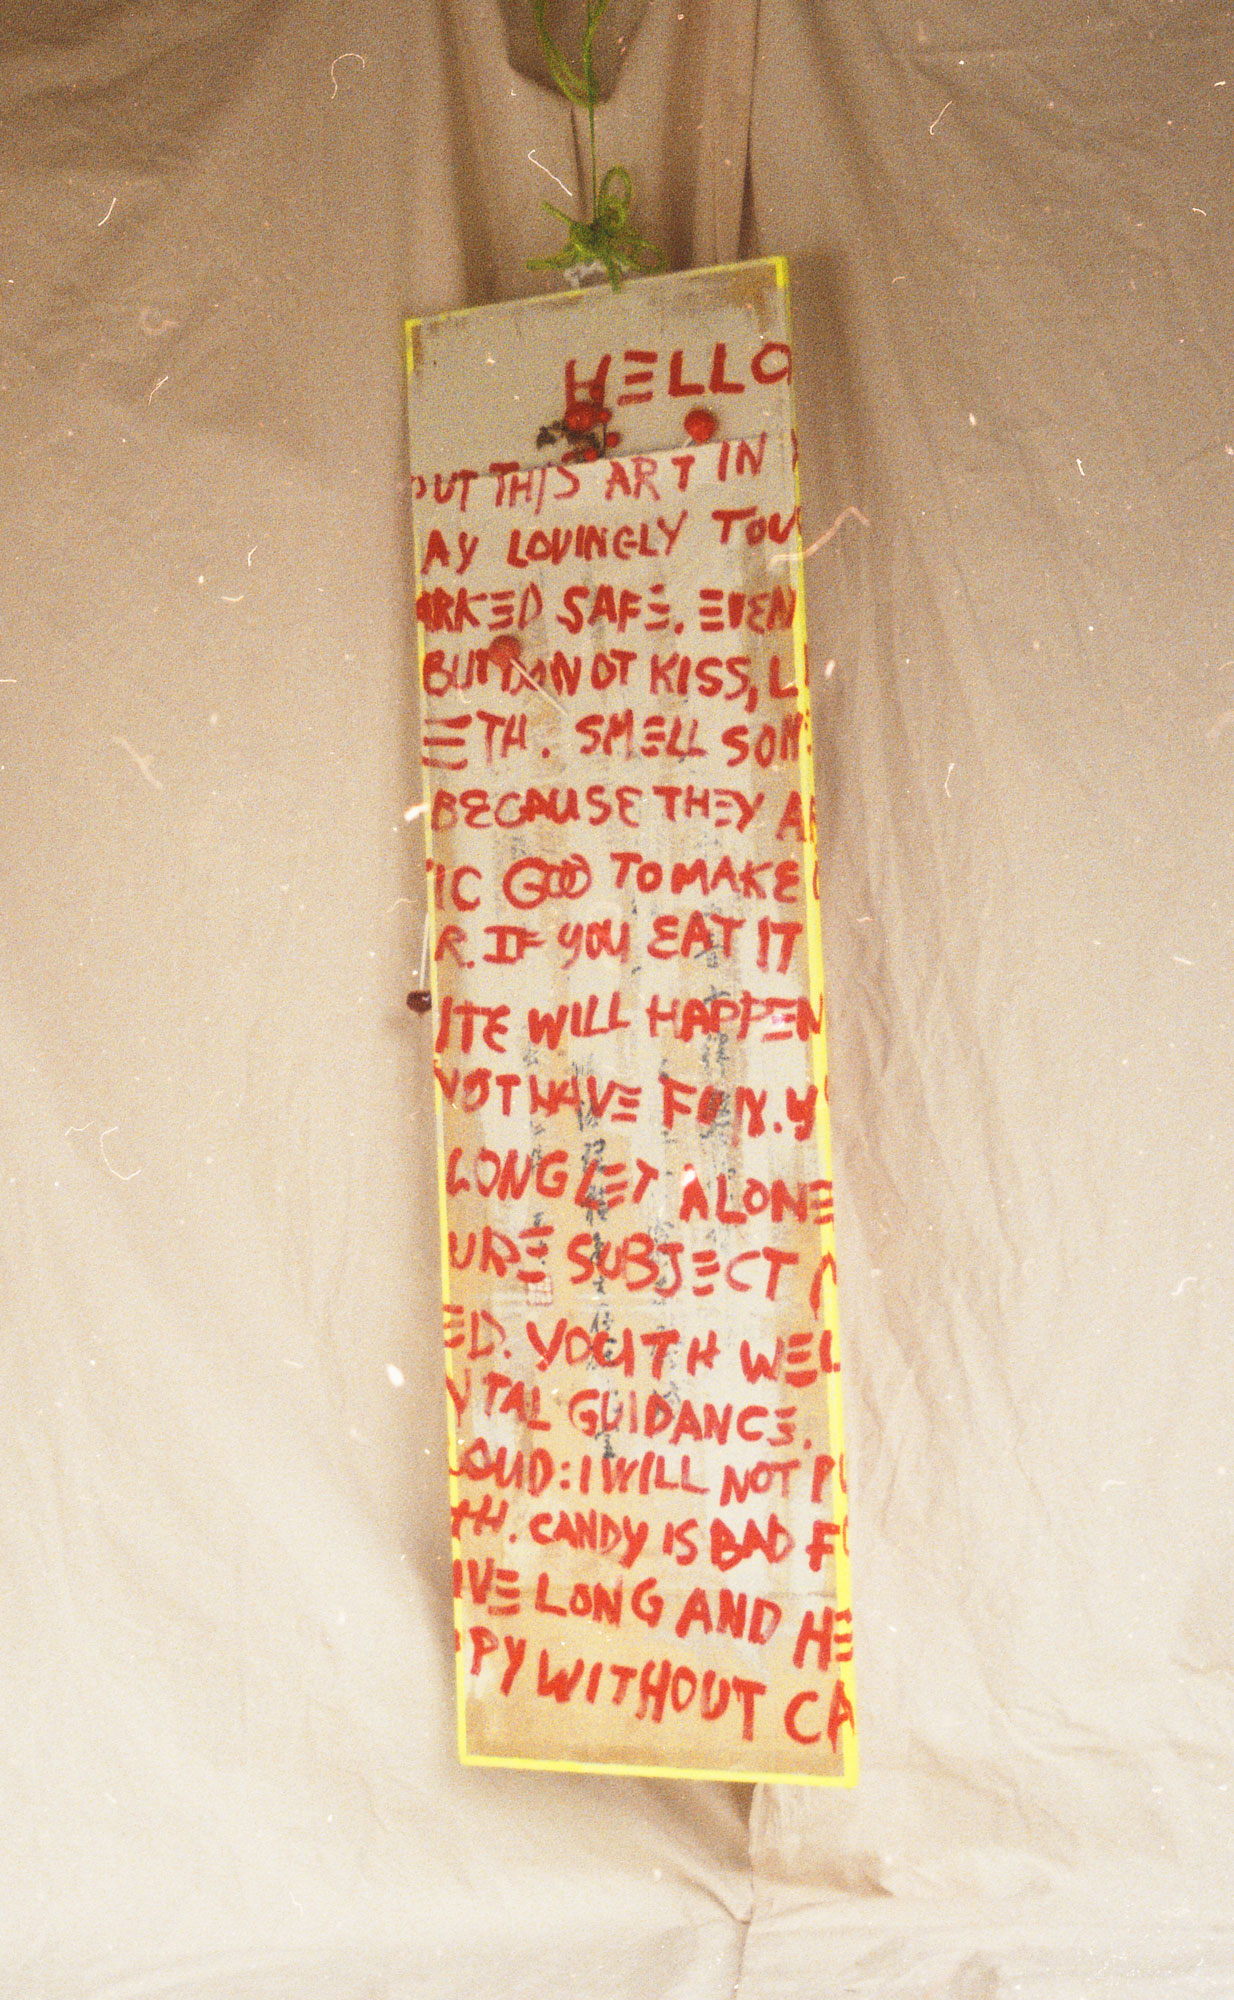 HELLO
OUT THIS ART IN
AY LOVINGLY TOU
ARKED SAFE. EVEN
BUT DO NOT KISS, L
ETH. SMELL SOME
BECAUSE THEY AR
IC GOOD TO MAKE
R. IF YOU EAT IT
ITE WILL HAPPEN
NOT HAVE FUN. Y
LONG LET ALONE
URE SUBJECT
ED. YOUTH WEL
NTAL GUIDANCE.
LOUD: I WILL NOT PU
TH. CANDY IS BAD FO
IVE LONG AND HE
PPY WITHOUT CA